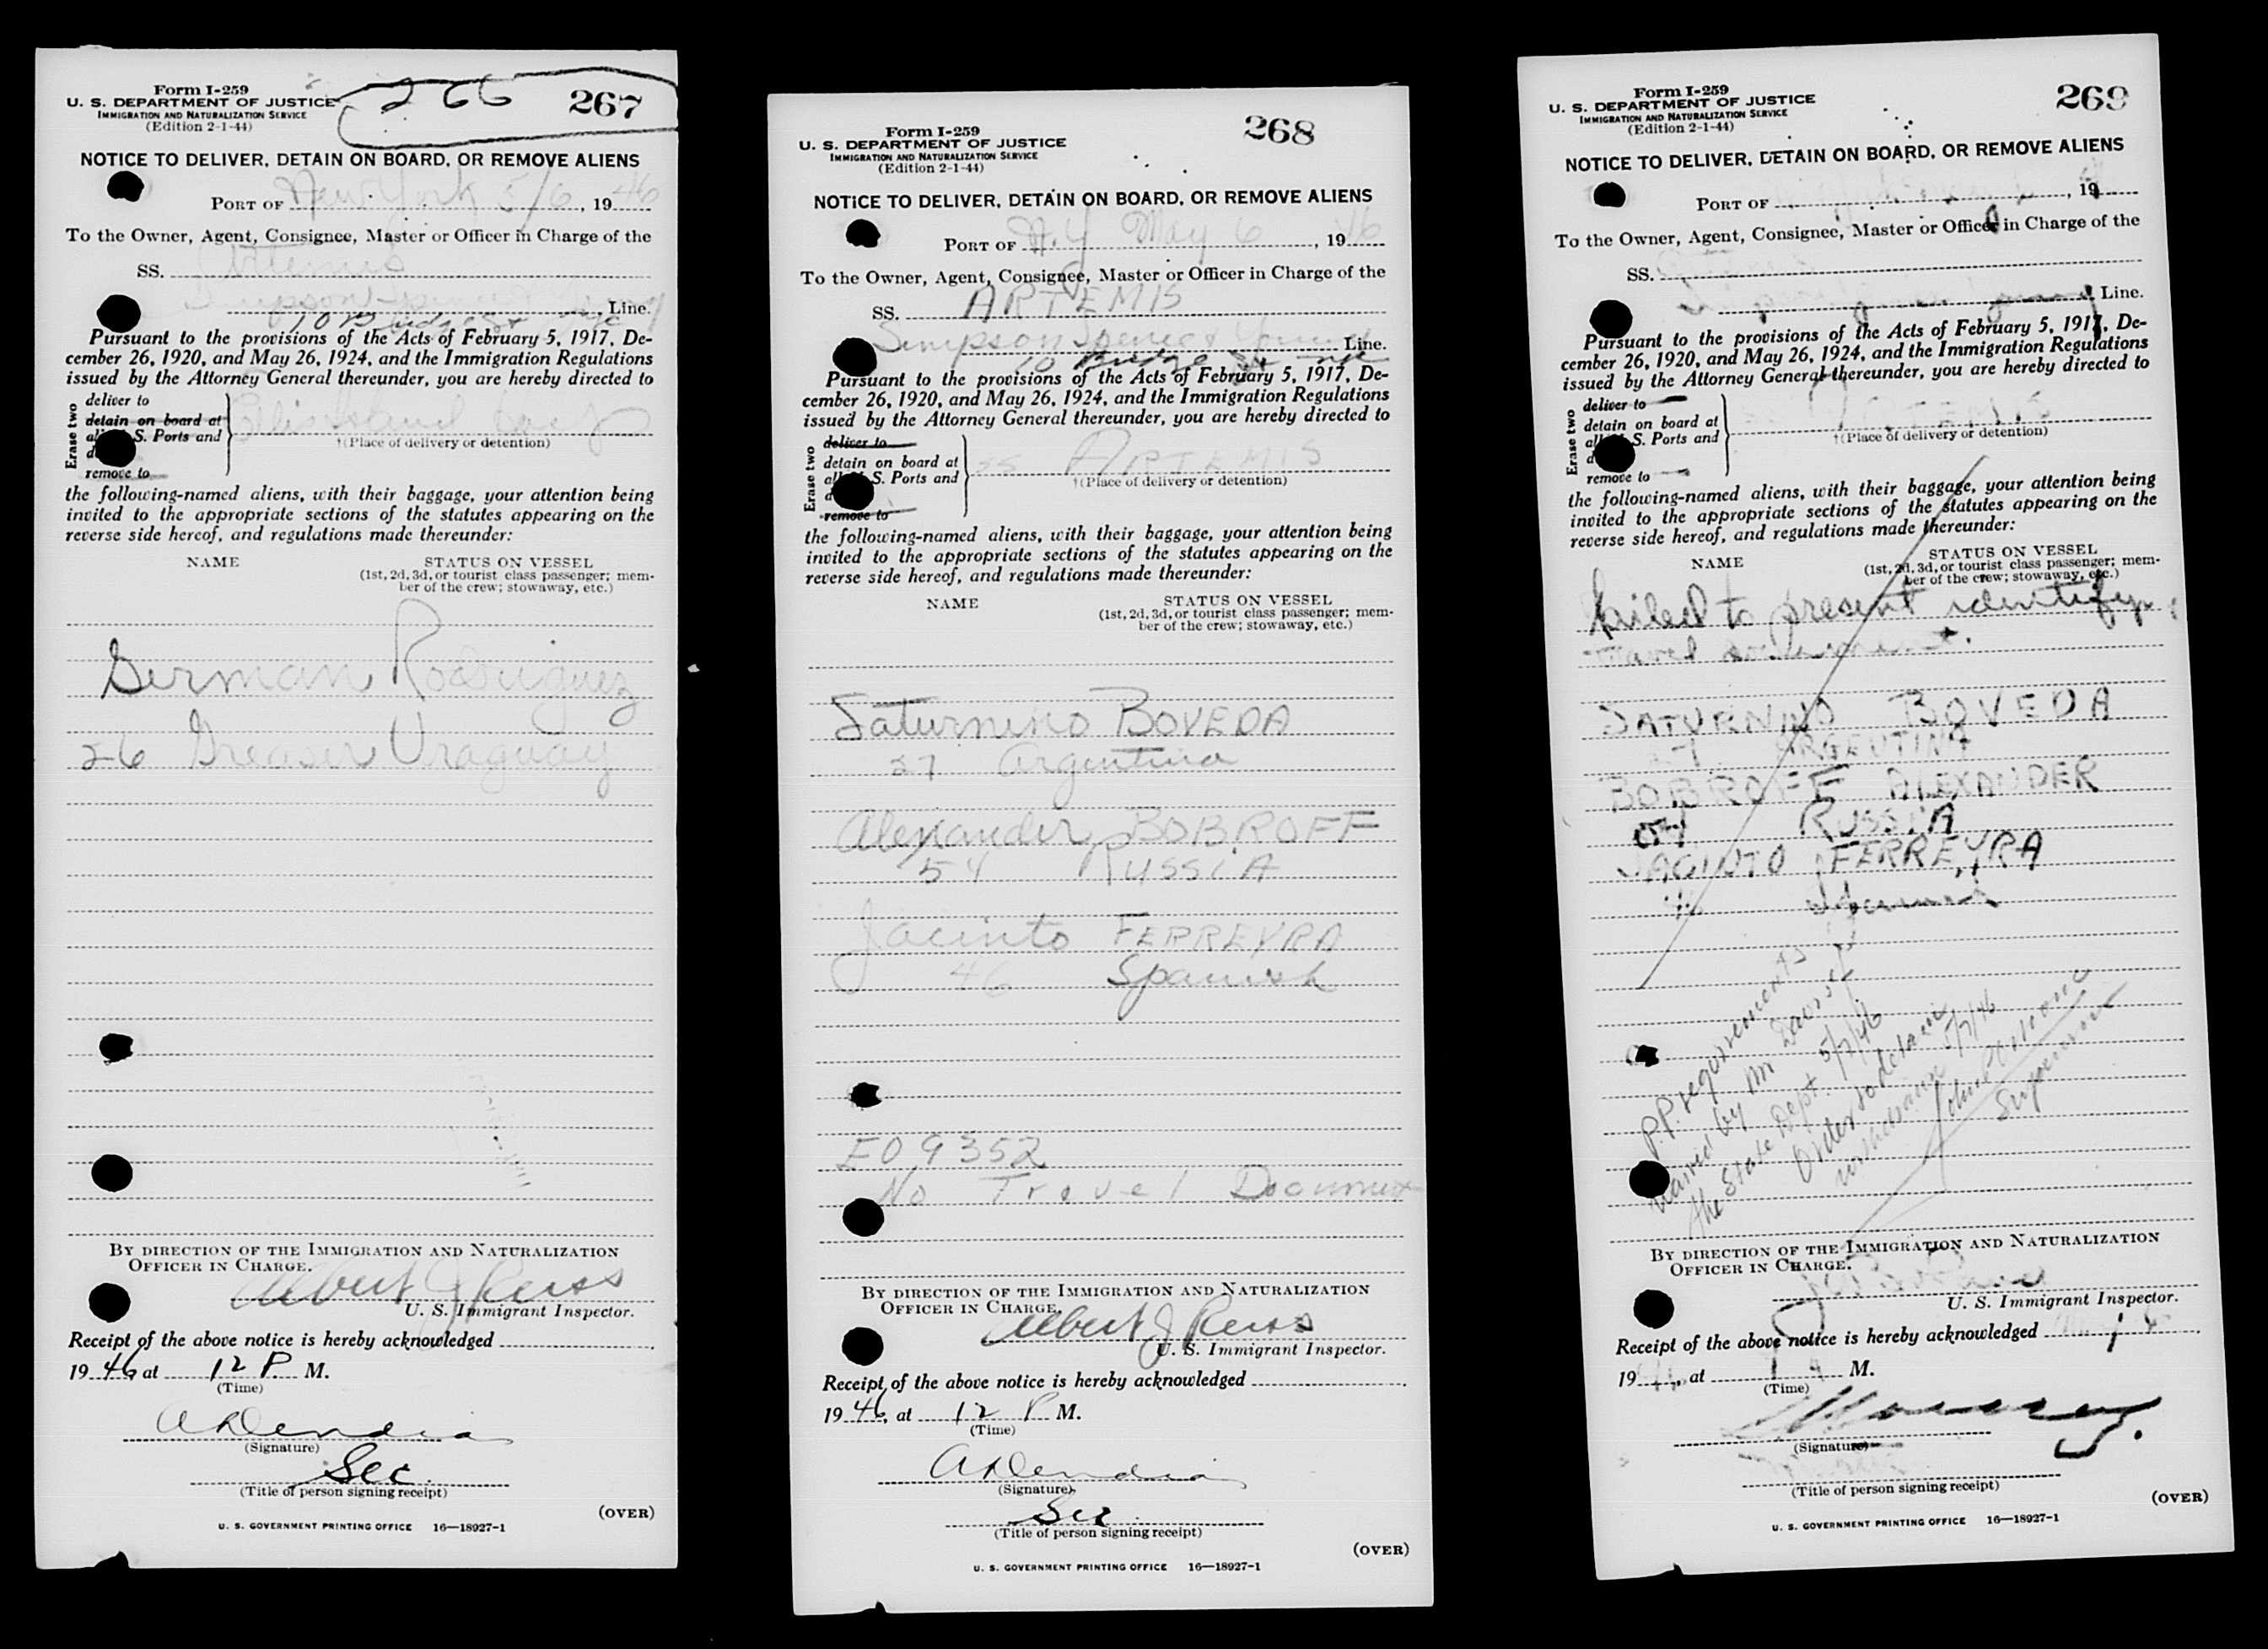 Form I-259
U. S. DEPARTMENT OF JUSTICE
IMMIGRATION AND NATURALIZATION SERVICE
(Edition 2-1-44)
266
267
NOTICE TO DELIVER, DETAIN ON BOARD, OR REMOVE ALIENS
PORT OF New York 5/6, 1946
To the Owner, Agent, Consignee, Master or Officer in Charge of the
SS. Artemis
Simpson Spence & Young Line.
10 Bridge St NYC
Pursuant to the provisions of the Acts of February 5, 1917, De-
cember 26, 1920, and May 26, 1924, and the Immigration Regulations
issued by the Attorney General thereunder, you are hereby directed to
Erase two
deliver to
detain on board at
S. Ports and
remove to
Ellis Island
†(Place of delivery or detention)
the following-named aliens, with their baggage, your attention being
invited to the appropriate sections of the statutes appearing on the
reverse side hereof, and regulations made thereunder:
NAME
STATUS ON VESSEL
(1st, 2d, 3d, or tourist class passenger; mem-
ber of the crew; stowaway, etc.)
German Rodriguez
26 Greaser Uraguay
BY DIRECTION OF THE IMMIGRATION AND NATURALIZATION
OFFICER IN CHARGE.
Albert J Reiss
U. S. Immigrant Inspector.
Receipt of the above notice is hereby acknowledged
1946 at 12 P. M.
(Time)
(Signature)
Sec.
(Title of person signing receipt)
(OVER)
U. S. GOVERNMENT PRINTING OFFICE 16—18927-1
Form I-259
U. S. DEPARTMENT OF JUSTICE
IMMIGRATION AND NATURALIZATION SERVICE
(Edition 2-1-44)
268
NOTICE TO DELIVER, DETAIN ON BOARD, OR REMOVE ALIENS
PORT OF N.Y May 6, 1946
To the Owner, Agent, Consignee, Master or Officer in Charge of the
SS. ARTEMIS
Simpson Spence & Young Line.
10 Bridge St NYC
Pursuant to the provisions of the Acts of February 5, 1917, De-
cember 26, 1920, and May 26, 1924, and the Immigration Regulations
issued by the Attorney General thereunder, you are hereby directed to
Erase two
deliver to
detain on board at
S. Ports and
remove to
SS ARTEMIS
†(Place of delivery or detention)
the following-named aliens, with their baggage, your attention being
invited to the appropriate sections of the statutes appearing on the
reverse side hereof, and regulations made thereunder:
NAME
STATUS ON VESSEL
(1st, 2d, 3d, or tourist class passenger; mem-
ber of the crew; stowaway, etc.)
Saturnino BOVEDA
27 Argentina
Alexander BOBROFF
54 RUSSIA
Jacinto FERREYRA
46 Spanish
EO 9352
No Travel Document
BY DIRECTION OF THE IMMIGRATION AND NATURALIZATION
OFFICER IN CHARGE.
Albert J Reiss
U. S. Immigrant Inspector.
Receipt of the above notice is hereby acknowledged
1946, at 12 P M.
(Time)
(Signature)
Sec
(Title of person signing receipt)
(OVER)
U. S. GOVERNMENT PRINTING OFFICE 16—18927-1
Form I-259
U. S. DEPARTMENT OF JUSTICE
IMMIGRATION AND NATURALIZATION SERVICE
(Edition 2-1-44)
269
NOTICE TO DELIVER, DETAIN ON BOARD, OR REMOVE ALIENS
PORT OF , 19
To the Owner, Agent, Consignee, Master or Officer in Charge of the
SS.
Line.
Pursuant to the provisions of the Acts of February 5, 1917, De-
cember 26, 1920, and May 26, 1924, and the Immigration Regulations
issued by the Attorney General thereunder, you are hereby directed to
Erase two
deliver to
detain on board at
S. Ports and
remove to
†(Place of delivery or detention)
the following-named aliens, with their baggage, your attention being
invited to the appropriate sections of the statutes appearing on the
reverse side hereof, and regulations made thereunder:
NAME
STATUS ON VESSEL
(1st, 2d, 3d, or tourist class passenger; mem-
ber of the crew; stowaway, etc.)
failed to present identifying
travel document.
SATURNINO BOVEDA
27 ARGENTINA
BOBROFF ALEXANDER
54 RUSSIA
JACINTO FERREYRA
Spanish
P.P. requirements
waived by Mr Davis of
the State Dept. 5/7/46
Order to detain
withdrawn 5/7/46
John
Supervisor
BY DIRECTION OF THE IMMIGRATION AND NATURALIZATION
OFFICER IN CHARGE.
U. S. Immigrant Inspector.
Receipt of the above notice is hereby acknowledged
19 , at M.
(Time)
(Signature)
(Title of person signing receipt)
(OVER)
U. S. GOVERNMENT PRINTING OFFICE 16—18927-1